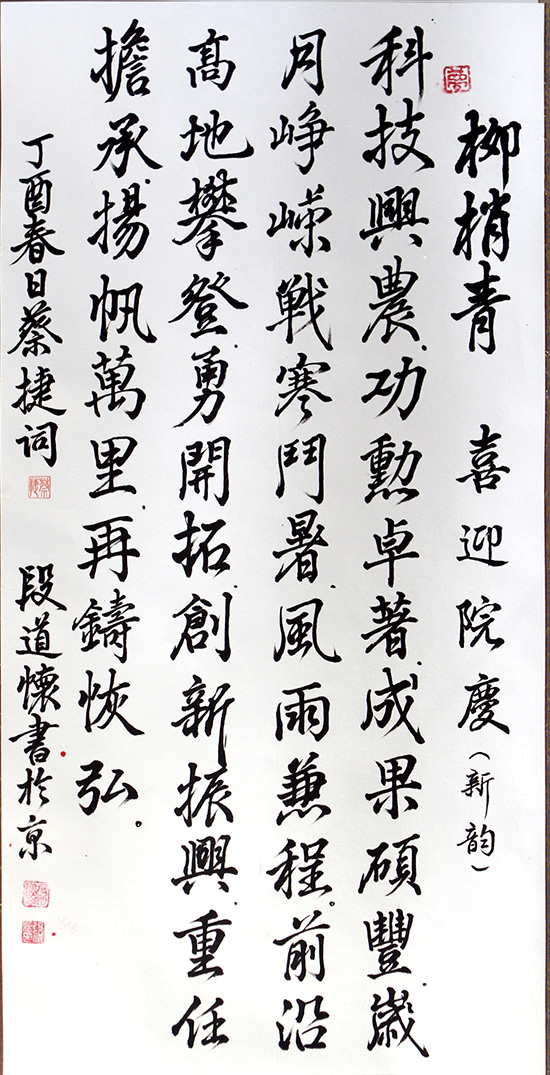 柳梢青 喜迎院慶(新韵)
科技興農.功勳卓著.成果碩豐.歲
月崢嶸.戰寒鬥暑.風雨兼程。前沿
高地攀登.勇開拓.創新振興.重任
擔承.揚帆萬里.再鑄恢弘。
丁酉春日蔡捷词 段道懷書於京